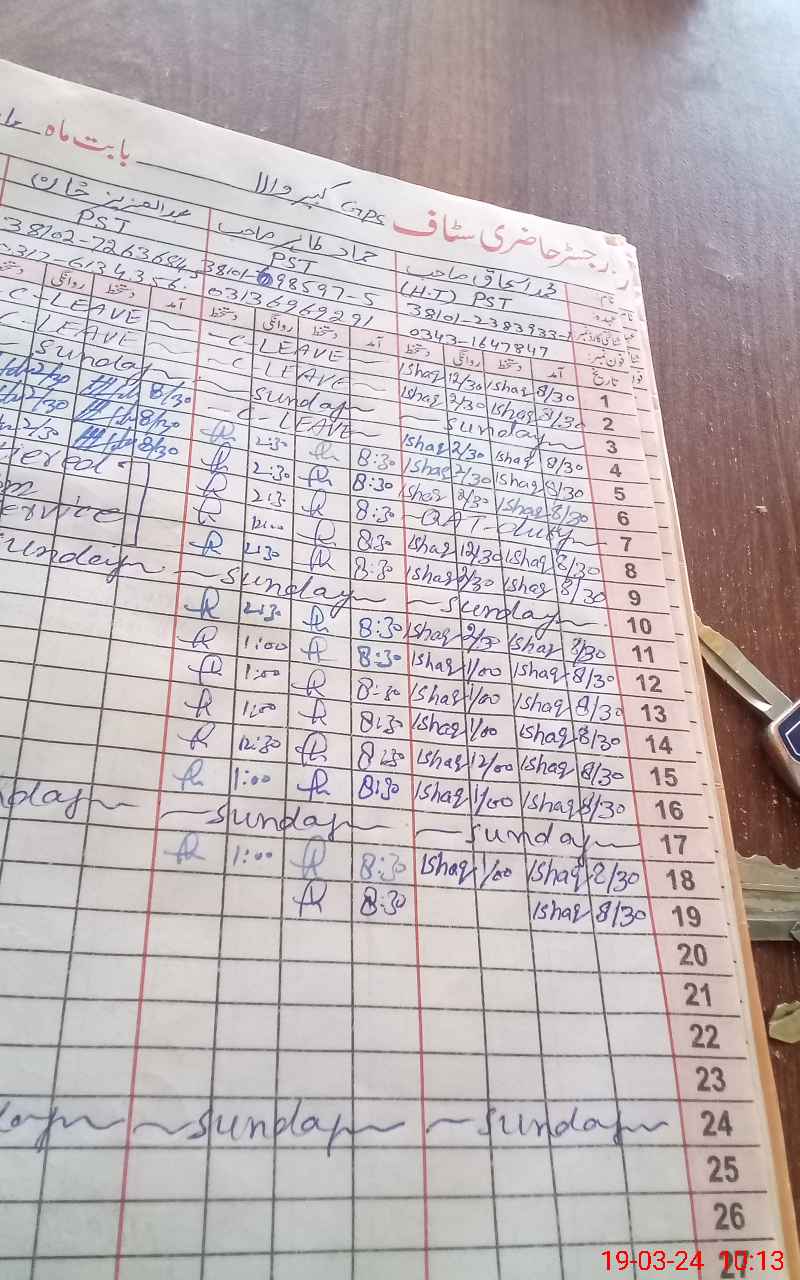 بابت ماہ
رجسٹر حاضری سٹاف GPS کبیر والا
محمد اسحاق صاحب حماد طاہر صاحب عبدالعزیز خان
(H.T) PST PST PST
38101-2383933-1
0343-1647847 03136969291
آمد دستخط روانگی دستخط آمد دستخط روانگی دستخط آمد دستخط روانگی
تاریخ
1 8/30 Ishaq 12/30 Ishaq ~C-LEAVE~ C-LEAVE~
2 8/30 Ishaq 2/30 Ishaq ~C-LEAVE~ C-LEAVE~
3 ~Sunday~ ~Sunday~ ~Sunday~
4 8/30 Ishaq 2/30 Ishaq ~C-LEAVE~ 8/30 2/30
5 8/30 Ishaq 2/30 Ishaq 8:30 2:30 8/30 2/30
6 8/30 Ishaq 2/30 Ishaq 8:30 2:30 8/30 2/30
7 ~QAT-duty~ 8:30 2:30
8 8/30 Ishaq 12/30 Ishaq 8:30 12:00 Service
9 8/30 Ishaq 2/30 Ishaq 8:30 2:30
10 ~Sunday~ ~Sunday~ Sunday~
11 8/30 Ishaq 2/30 Ishaq 8:30 2:30
12 8/30 Ishaq 1/00 Ishaq 8:30 1:00
13 8/30 Ishaq 1/00 Ishaq 8:30 1:00
14 8/30 Ishaq 1/00 Ishaq 8:30 1:00
15 8/30 Ishaq 12/00 Ishaq 8:30 12:30
16 8/30 Ishaq 1/00 Ishaq 8:30 1:00
17 ~Sunday~ ~Sunday~ nday~
18 8/30 Ishaq 1/00 Ishaq 8:30 1:00
19 8/30 Ishaq 8:30
20
21
22
23
24 ~Sunday~ ~Sunday~ day~
25
26
27
19-03-24 10:13